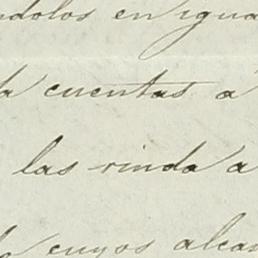 ndolos en igua
da cuentas á
las rinda a
de cuyos alcan